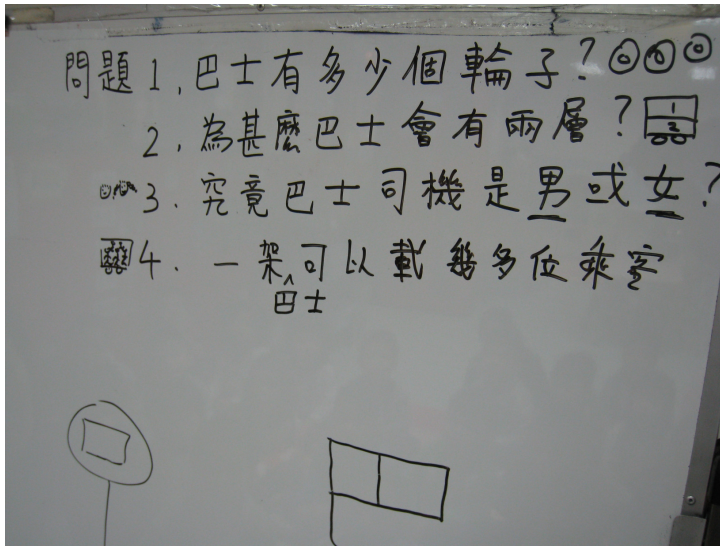 問題1. 巴士有多少個輪子?
2. 為甚麼巴士會有兩層? 1 2
3. 究竟巴士司機是男或女?
4. 一架巴士可以載幾多位乘客